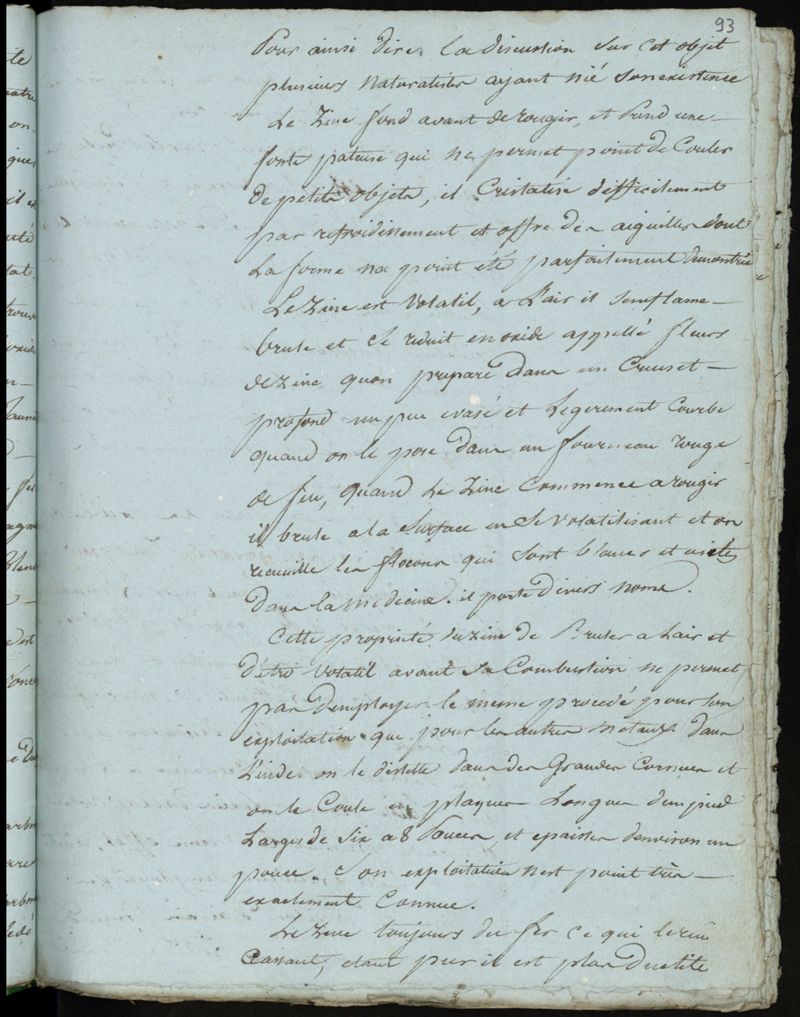 93
Pour ainsi dire, la discussion sur cet objet
plusieurs naturalistes ayant nié son existence
Le Zinc fond avant de rougir, et Prend une
fonte pateuse qui ne permet point de Couler
de petits objets, il Cristalise difficilement
par refroidissement et offre des aiguilles dont
La forme na point été parfaitement demontrée
Le Zinc est Volatil, a Lair il senflame
brule et Ce reduit en oxide appellé fleurs
de Zinc quon preparé dans un Creuset
profond un peu evasé et Legerement Courbe
quand on le pose dans un fourneau rouge
de feu, quand Le Zinc Commence a rougir
il brule a la Surface en Se Volatilisant et on
recueille les flocons qui sont blancs et usités
dans la medecine. il porte divers noms.
Cette propriété du Zinc de Bruler a Lair et
detre Volatil avant Sa Combustion ne permet
pas demployer le meme procedé pour son
exploitation que pour les autres metaux. dans
L'inde on le distille dans des Grandes Cornues et
on le Coule en plaques Longues dun pied
Larges de Six a 8 Pouces, et epaisses denviron un
pouce. Son exploitation nest point très
exactement Connue.
Le Zinc toujours du fer ce qui le
Cassant, etant pur il est plus Ductile